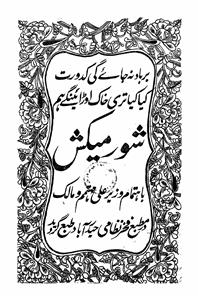 برباد نہ جائے گی کدورت
کیا کیا تری خاک اڑائینگے ہم
شور میکش
باہتمام وزیر علی مہتمم و مالک
در مطبع فخر نظامی حیدرآباد طبع گردید